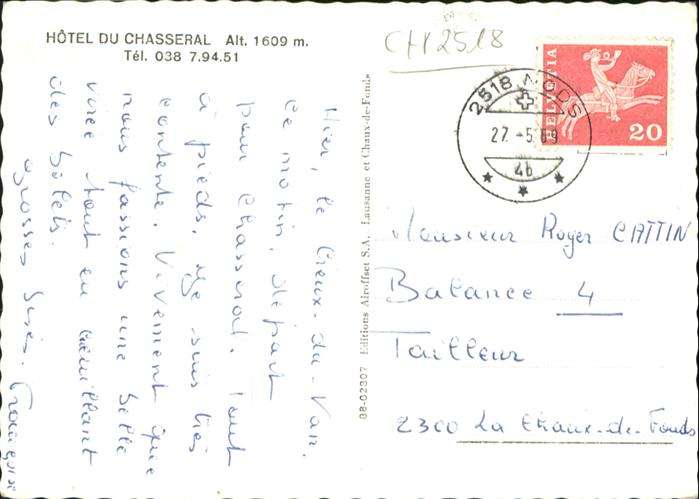 HÔTEL DU CHASSERAL Alt. 1609 m.
Tél. 038 7.94.51
CH 2518
Hier, le Creux-du-Van.
Ce matin, départ
pour Chasseral. Tout
à pieds. Je suis très
contente. Vivement que
nous fassions une belle
virée tout en cueillant
des bolets.
grosses bises.
88-02307 Editions Airoffset S.A. Lausanne et Chaux-de-Fonds
2518 NODS
27.-5.69
4b
HELVETIA
20
Monsieur Roger CATTIN
Balance 4
Tailleur
2300 La Chaux-de-Fonds